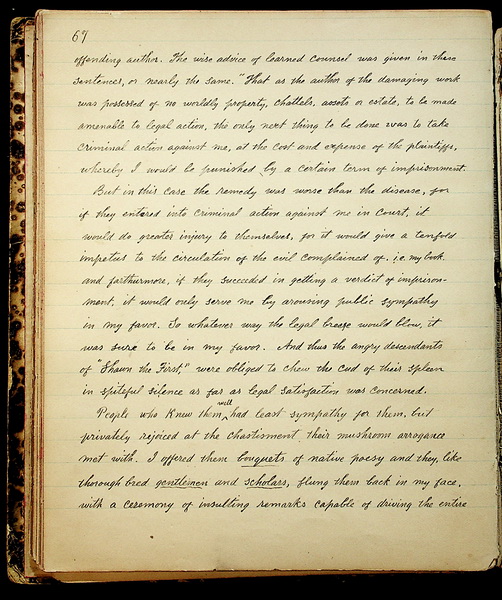 67
offending author. The wise advice of learned counsel was given in these
sentences, or nearly the same. "That as the author of the damaging work
was possessed of no worldly property, chattels, assets or estate, to be made
amenable to legal action, the only next thing to be done was to take
criminal action against me, at the cost and expense of the plaintiffs,
whereby I would be punished by a certain term of imprisonment.
But in this case the remedy was worse than the disease, for
if they entered into criminal action against me in Court, it
would do greater injury to themselves, for it would give a tenfold
impetus to the circulation of the evil complained of. i.e. my book
and furthermore, if they succeeded in getting a verdict of imprison-
ment, it would only serve me by arousing public sympathy
in my favor. So whatever way the legal breeze would blow, it
was sure to be in my favor. And thus the angry descendants
of "Shawn the First," were obliged to chew the cud of their spleen
in spiteful silence as far as legal satisfaction was concerned.
People who knew them well had least sympathy for them, but
privately rejoiced at the chastisment their mushroom arrogance
met with. I offered them bouquets of native poesy and they, like
thorough bred gentlemen and scholars, flung them back in my face,
with a ceremony of insulting remarks capable of driving the entire